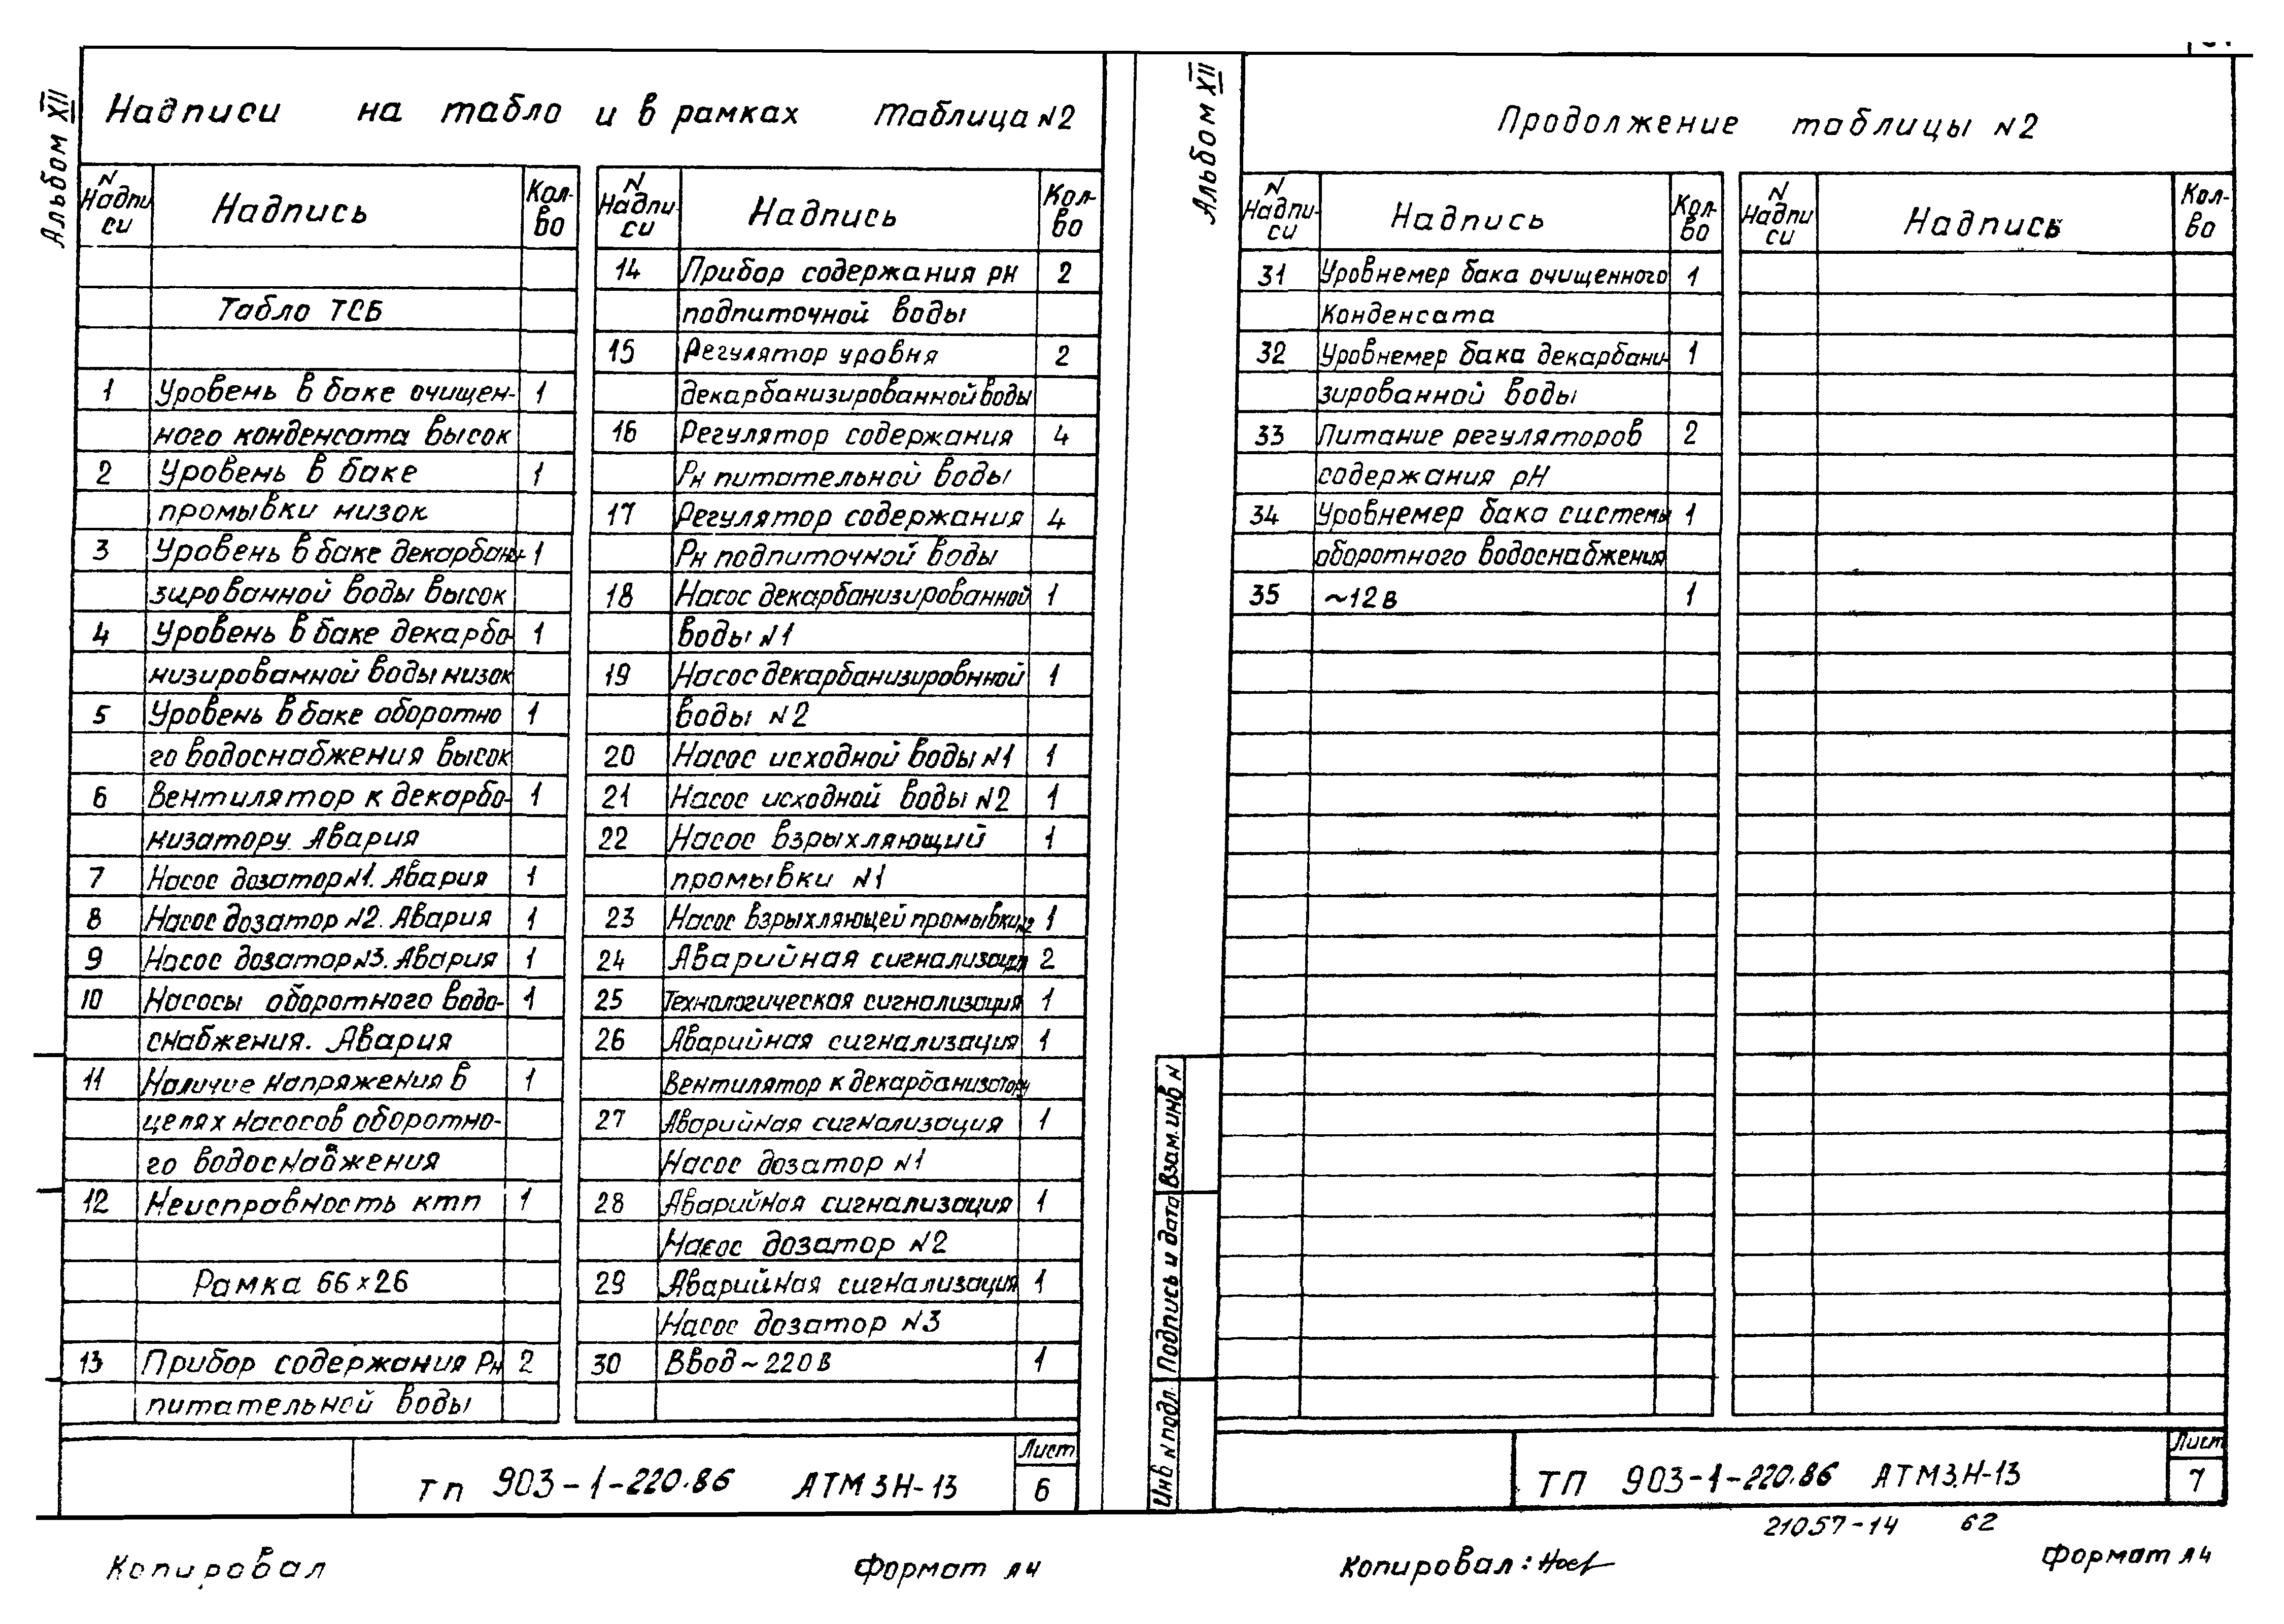 Альбом XII
Надписи на табло и в рамках Таблица N2
N Надпи си Надпись Кол-во
Табло ТСБ
1 Уровень в баке очищен- 1
ного конденсата высок
2 Уровень в баке 1
промывки низок
3 Уровень в баке декарбани- 1
зированной воды высок
4 Уровень в баке декарбо- 1
низированной воды низок
5 Уровень в баке оборотно 1
го водоснабжения высок
6 Вентилятор к декарбо- 1
низатору. Авария
7 Насос дозатор N1. Авария 1
8 Насос дозатор N2. Авария 1
9 Насос дозатор N3. Авария 1
10 Насосы оборотного водо- 1
снабжения. Авария
11 Наличие напряжения в 1
цепях насосов оборотно-
го водоснабжения
12 Неисправность ктп 1
Рамка 66×26
13 Прибор содержания Рн 2
питательной воды
N Надпи си Надпись Кол-во
14 Прибор содержания рн 2
подпиточной воды
15 Регулятор уровня 2
декарбанизированной воды
16 Регулятор содержания 4
Рн питательной воды
17 Регулятор содержания 4
Рн подпиточной воды
18 Насос декарбанизированной 1
воды N1
19 Насос декарбанизировнной 1
воды N2
20 Насос исходной воды N1 1
21 Насос исходной воды N2 1
22 Насос взрыхляющий 1
промывки N1
23 Насос взрыхляющей промывки N2 1
24 Аварийная сигнализация 2
25 Технологическая сигнализация 1
26 Аварийная сигнализация 1
Вентилятор к декарбанизатору
27 Аварийная сигнализация 1
Насос дозатор N1
28 Аварийная сигнализация 1
Насос дозатор N2
29 Аварийная сигнализация 1
Насос дозатор N3
30 Ввод ~ 220 В 1
ТП 903-1-220.86 АТМ3Н-13
Лист
6
Копировал Формат А4
Альбом XII
Продолжение таблицы N2
N Надпи- си Надпись Кол-во
31 Уровнемер бака очищенного 1
Конденсата
32 Уровнемер бака декарбани- 1
зированной воды
33 Питание регуляторов 2
содержания рН
34 Уровнемер бака системы 1
оборотного водоснабжения
35 ~12в 1
N Надпи си Надпись Кол-во
Взам. инв N
Подпись и дата
Инв N подл.
ТП 903-1-220.86 АТМ3.Н-13
Лист
7
21057-14 62
Копировал: Формат А4